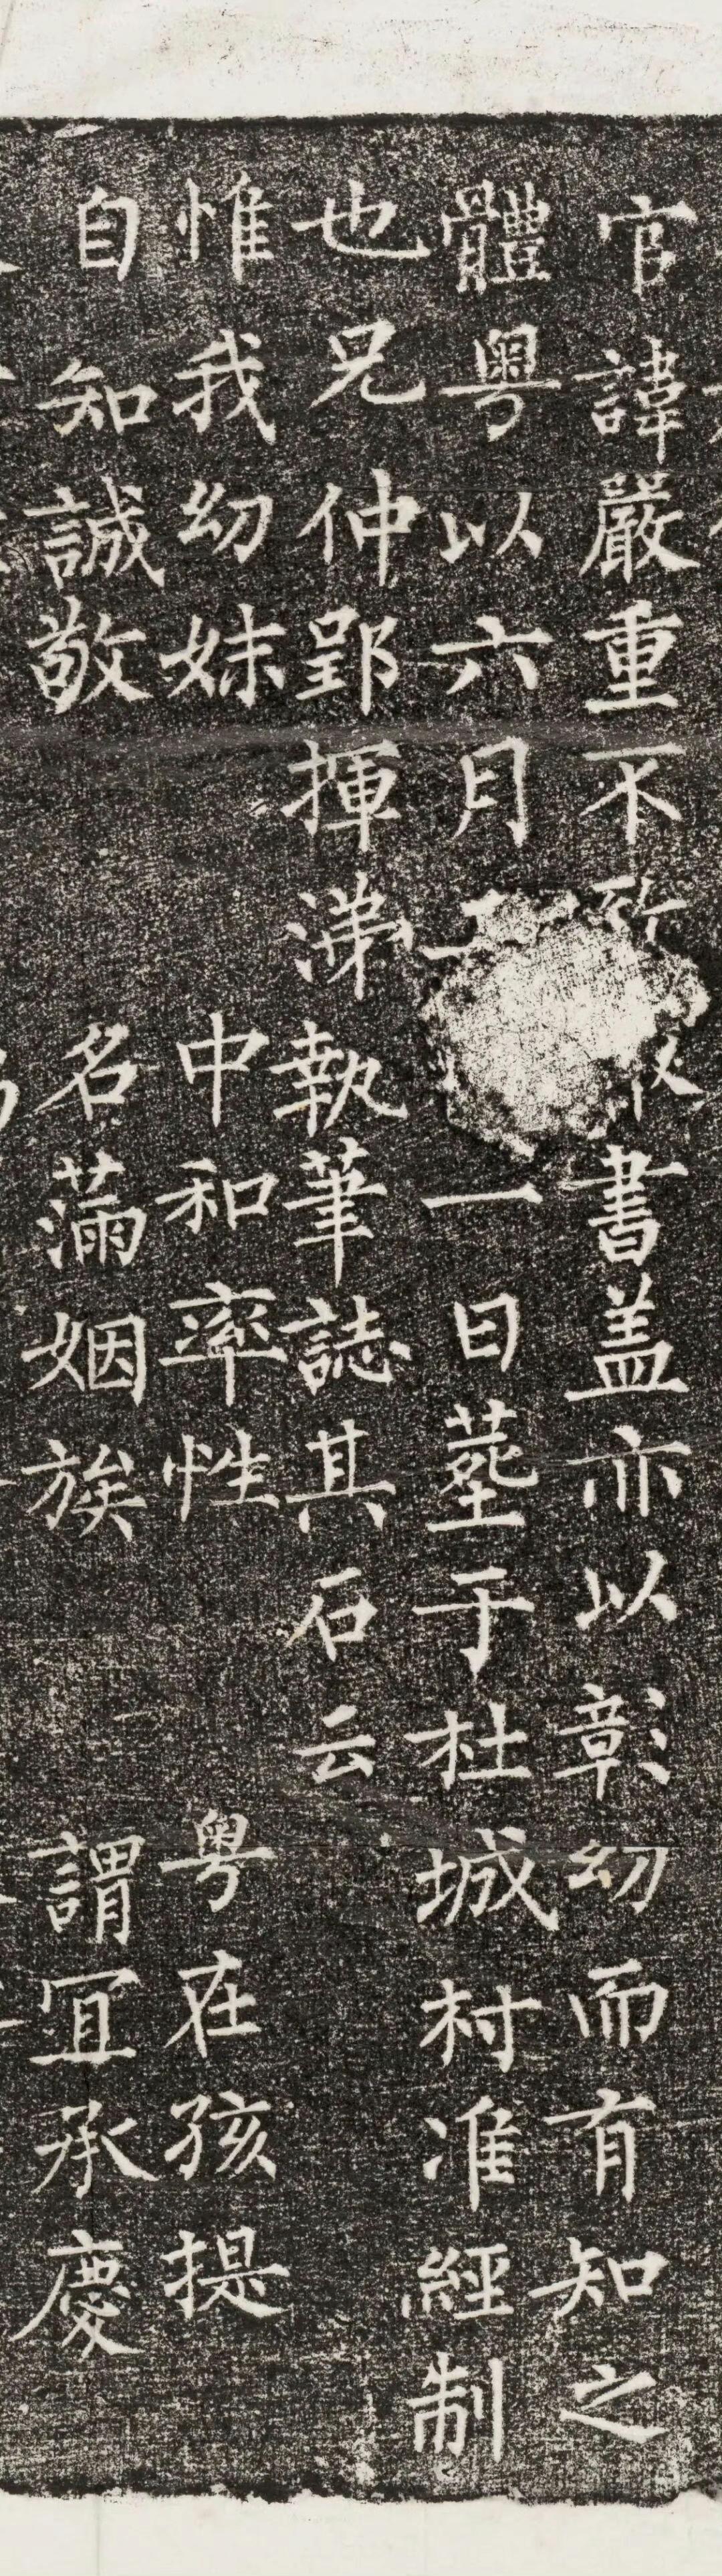 官諱嚴重不敢書盖亦以彰幼而有知之
體粤以六月一日葬于杜城村准經制
也兄仲郢揮涕執筆誌其石云
惟我幼妹 中和率性 粤在孩提
自知誠敬 名滿姻族 謂冝承慶